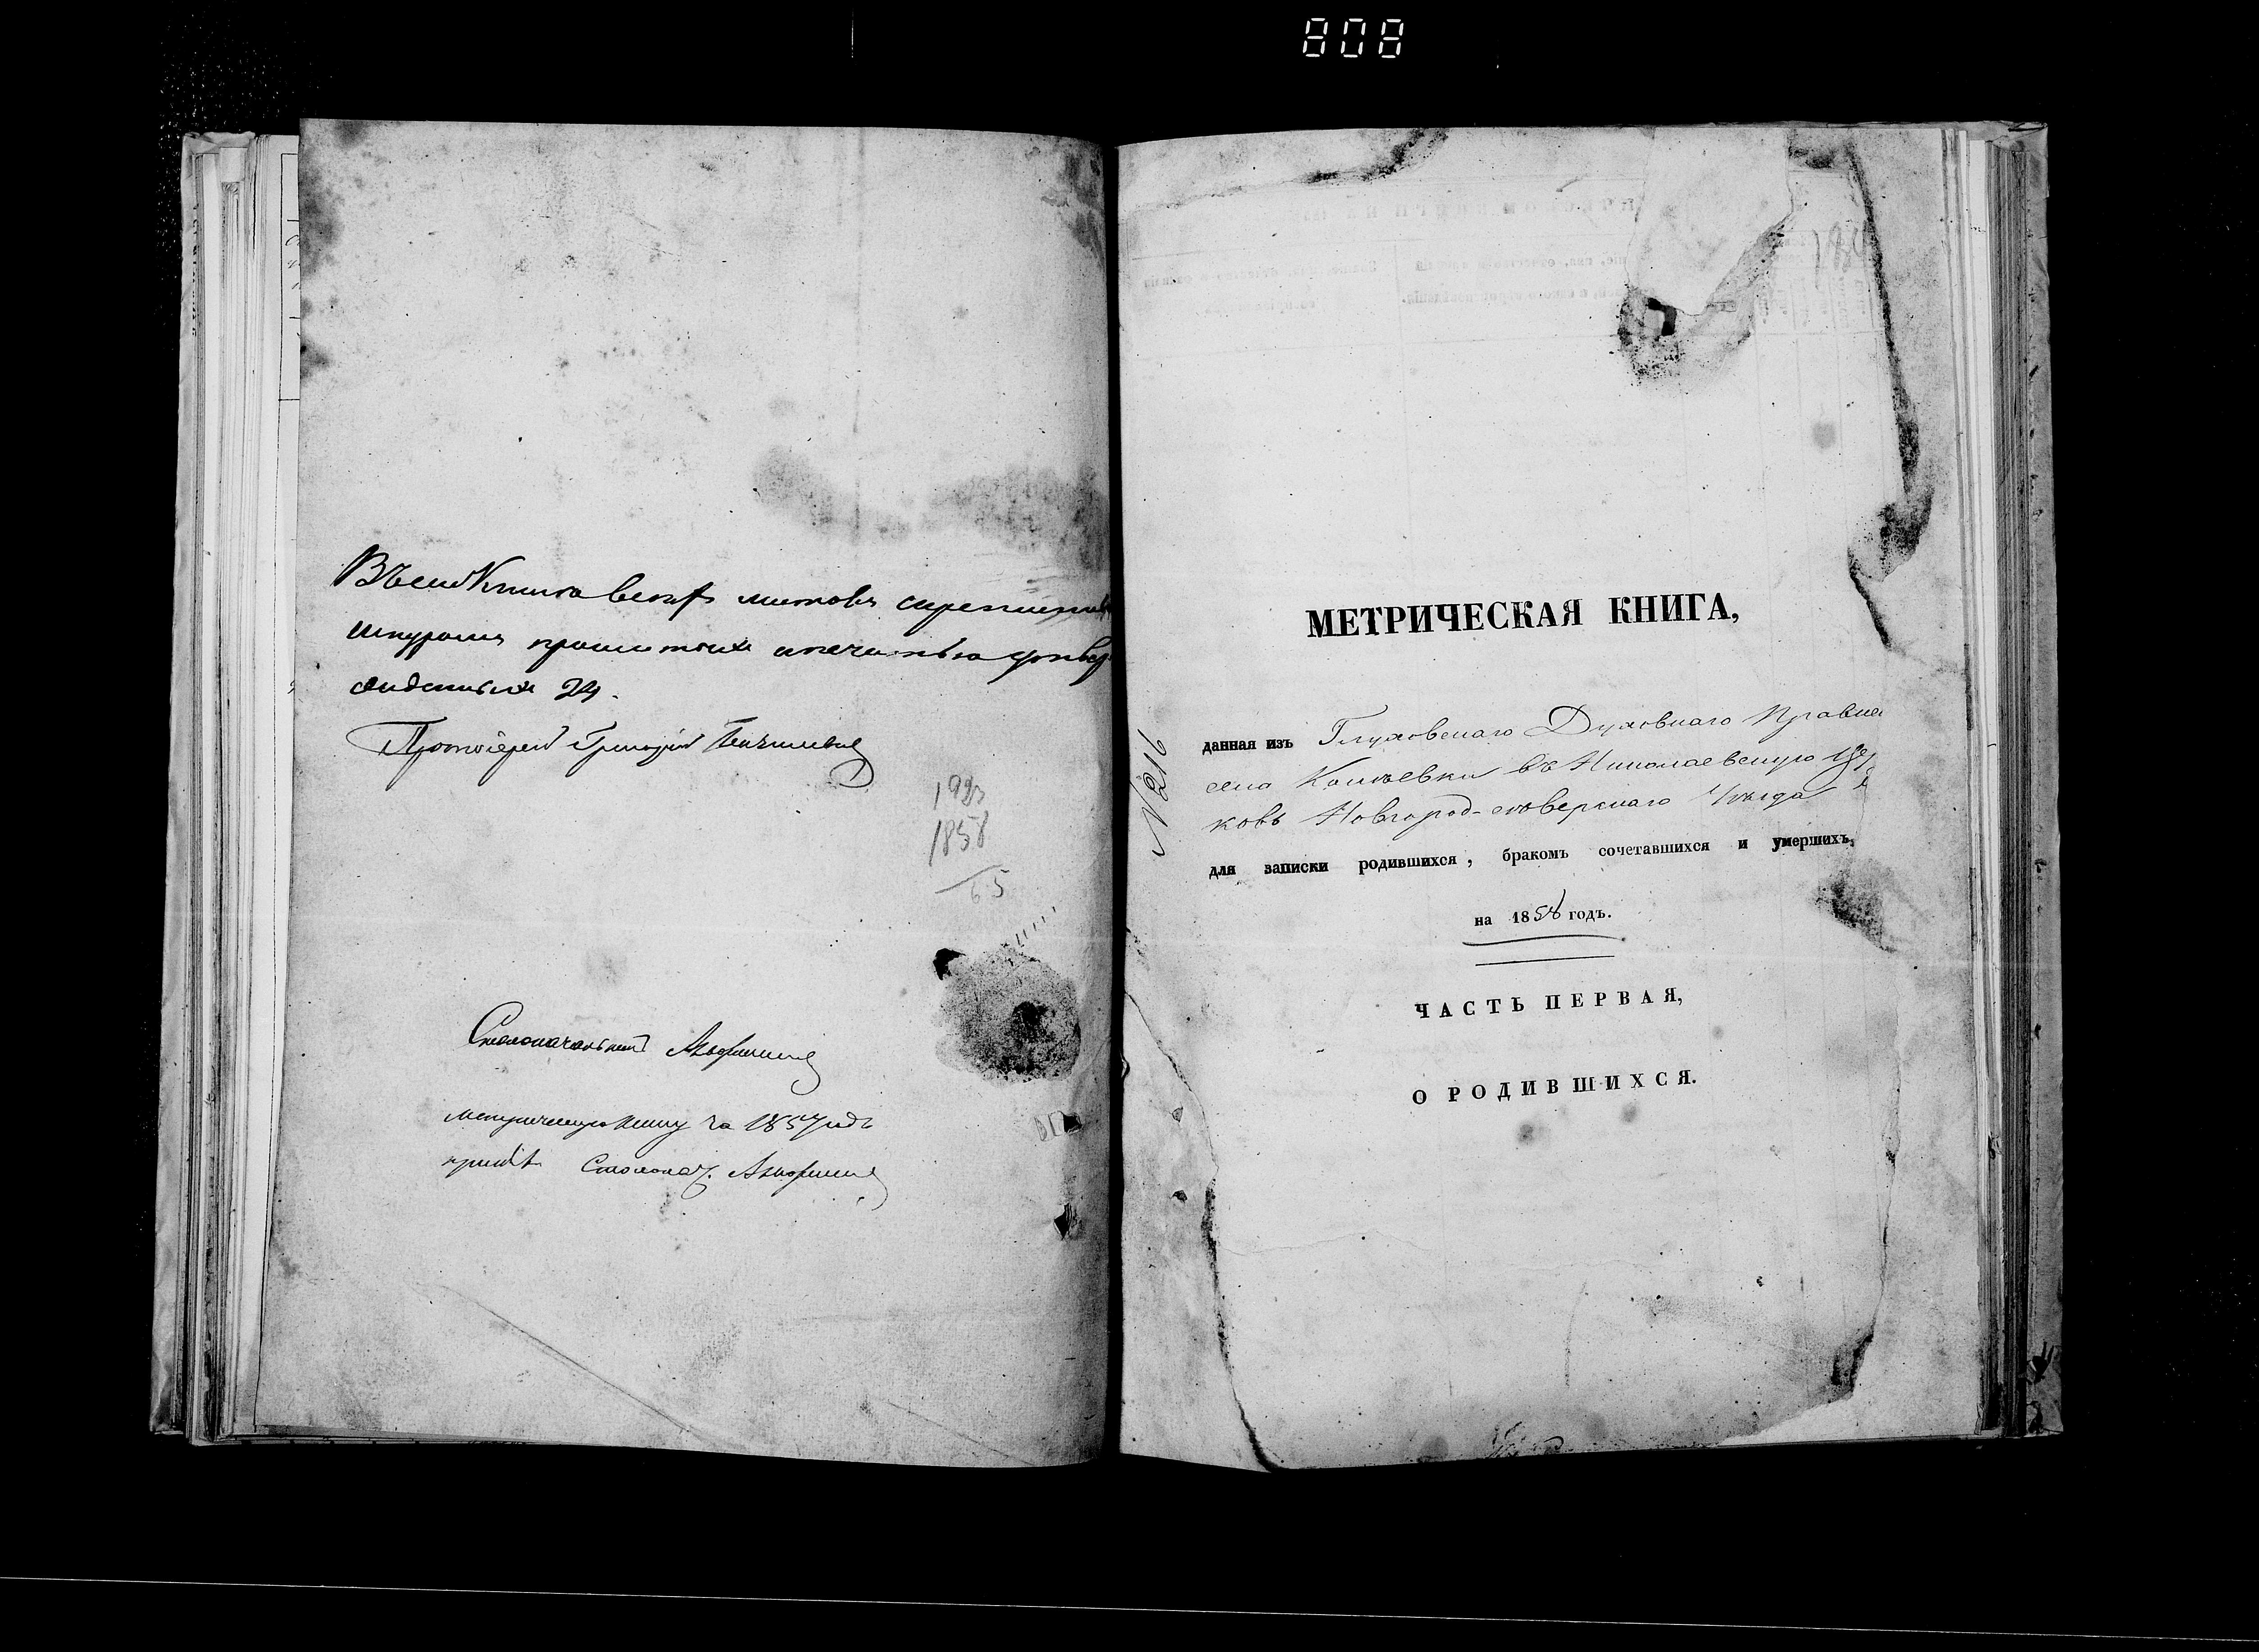 808
Въ сей Книге всехъ листовъ скрепленныхъ
шнуромъ прошитыхъ и печатью утвер
жденныхъ 24.
Протоіерей Григорій
1923
1858
65
Столоначальникъ
метрическую книгу за 1857 годъ
принялъ Столонач.
№ 216
МЕТРИЧЕСКАЯ КНИГА,
данная изъ Глуховскаго Духовнаго Правле
села въ Николаевскую Цер
ковь Новгород-сѣверскаго Уѣзда
для записки родившихся, бракомъ сочетавшихся и умершихъ,
на 1858 годъ.
ЧАСТЬ ПЕРВАЯ,
О РОДИВШИХСЯ.